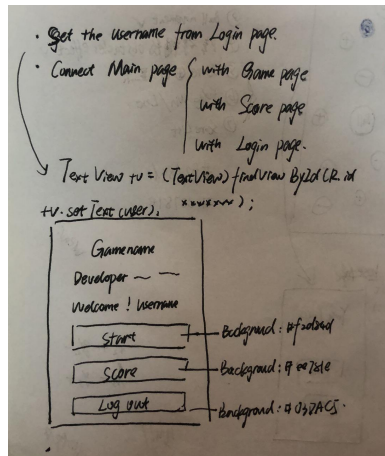 · Get the username from Login page.
· Connect Main page { with Game page
with Score page
with Login page.
Text View tv = (TextView) findViewById(R.id
tv.setText(user); xxxxxx);
Gamename
Developer ~ ~
Welcome ! Username
Start
Background:
Score
Background:
Log out
Background: #03DAC5.